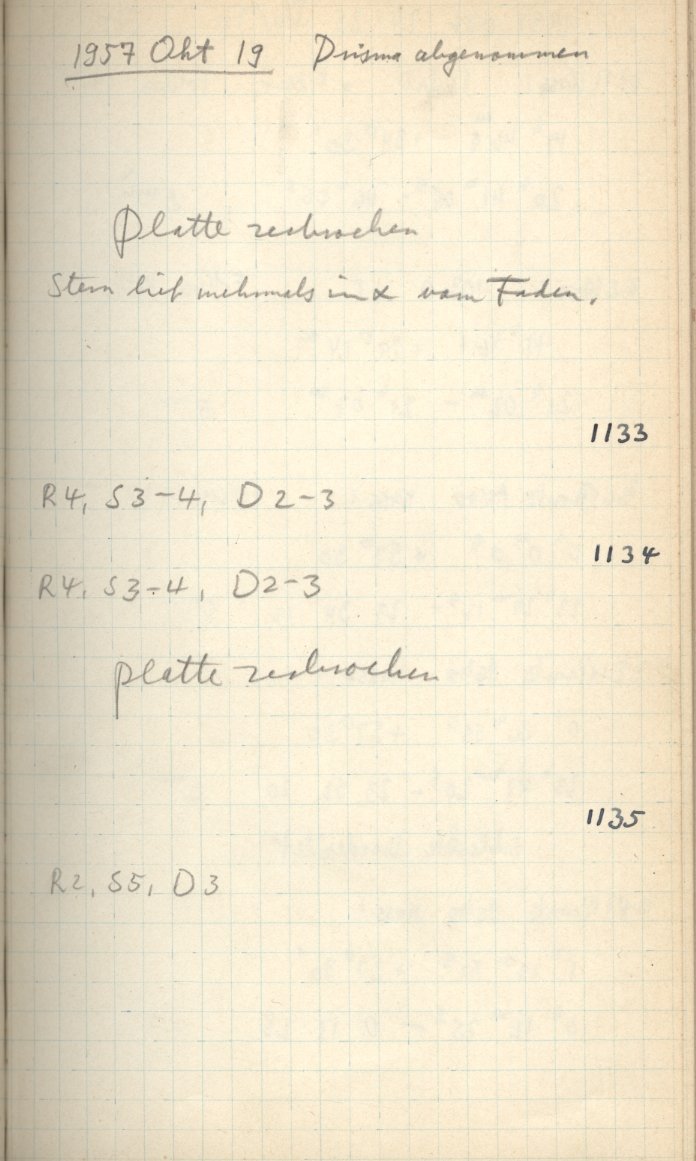 1957 Okt 19 Prisma abgenommen
Platte zerbrochen
Stern lief mehrmals in α vom Faden.
1133
R4, S3-4, D2-3
1134
R4, S3-4, D2-3
platte zerbrochen
1135
R2, S5, D3